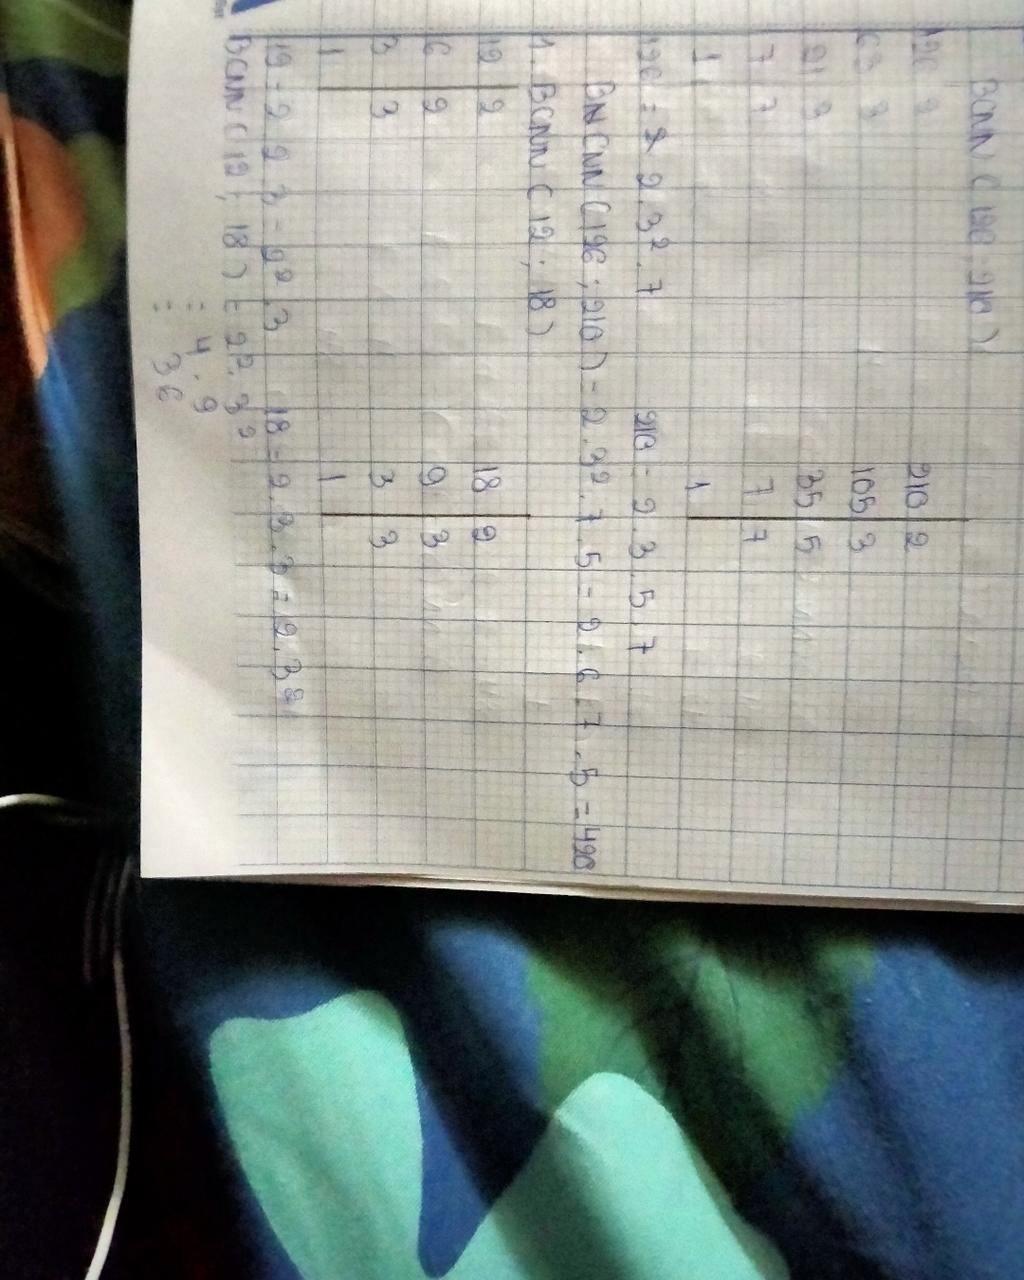 BCNN (126; 210)
126 2 210 2
63 3 105 3
21 3 35 5
7 7 7 7
1 1
126 = 2.3².7 210 = 2.3.5.7
BNCNN (126; 210) = 2.3².7.5 = 2.6.7.5 = 420
1. BCNN (12; 18)
12 2 18 2
6 2 9 3
3 3 3 3
1 1
12 = 2.2.3 = 2².3 18 = 2.3.3 = 2.3²
BCNN (12; 18) = 2².3²
= 4.9
= 36